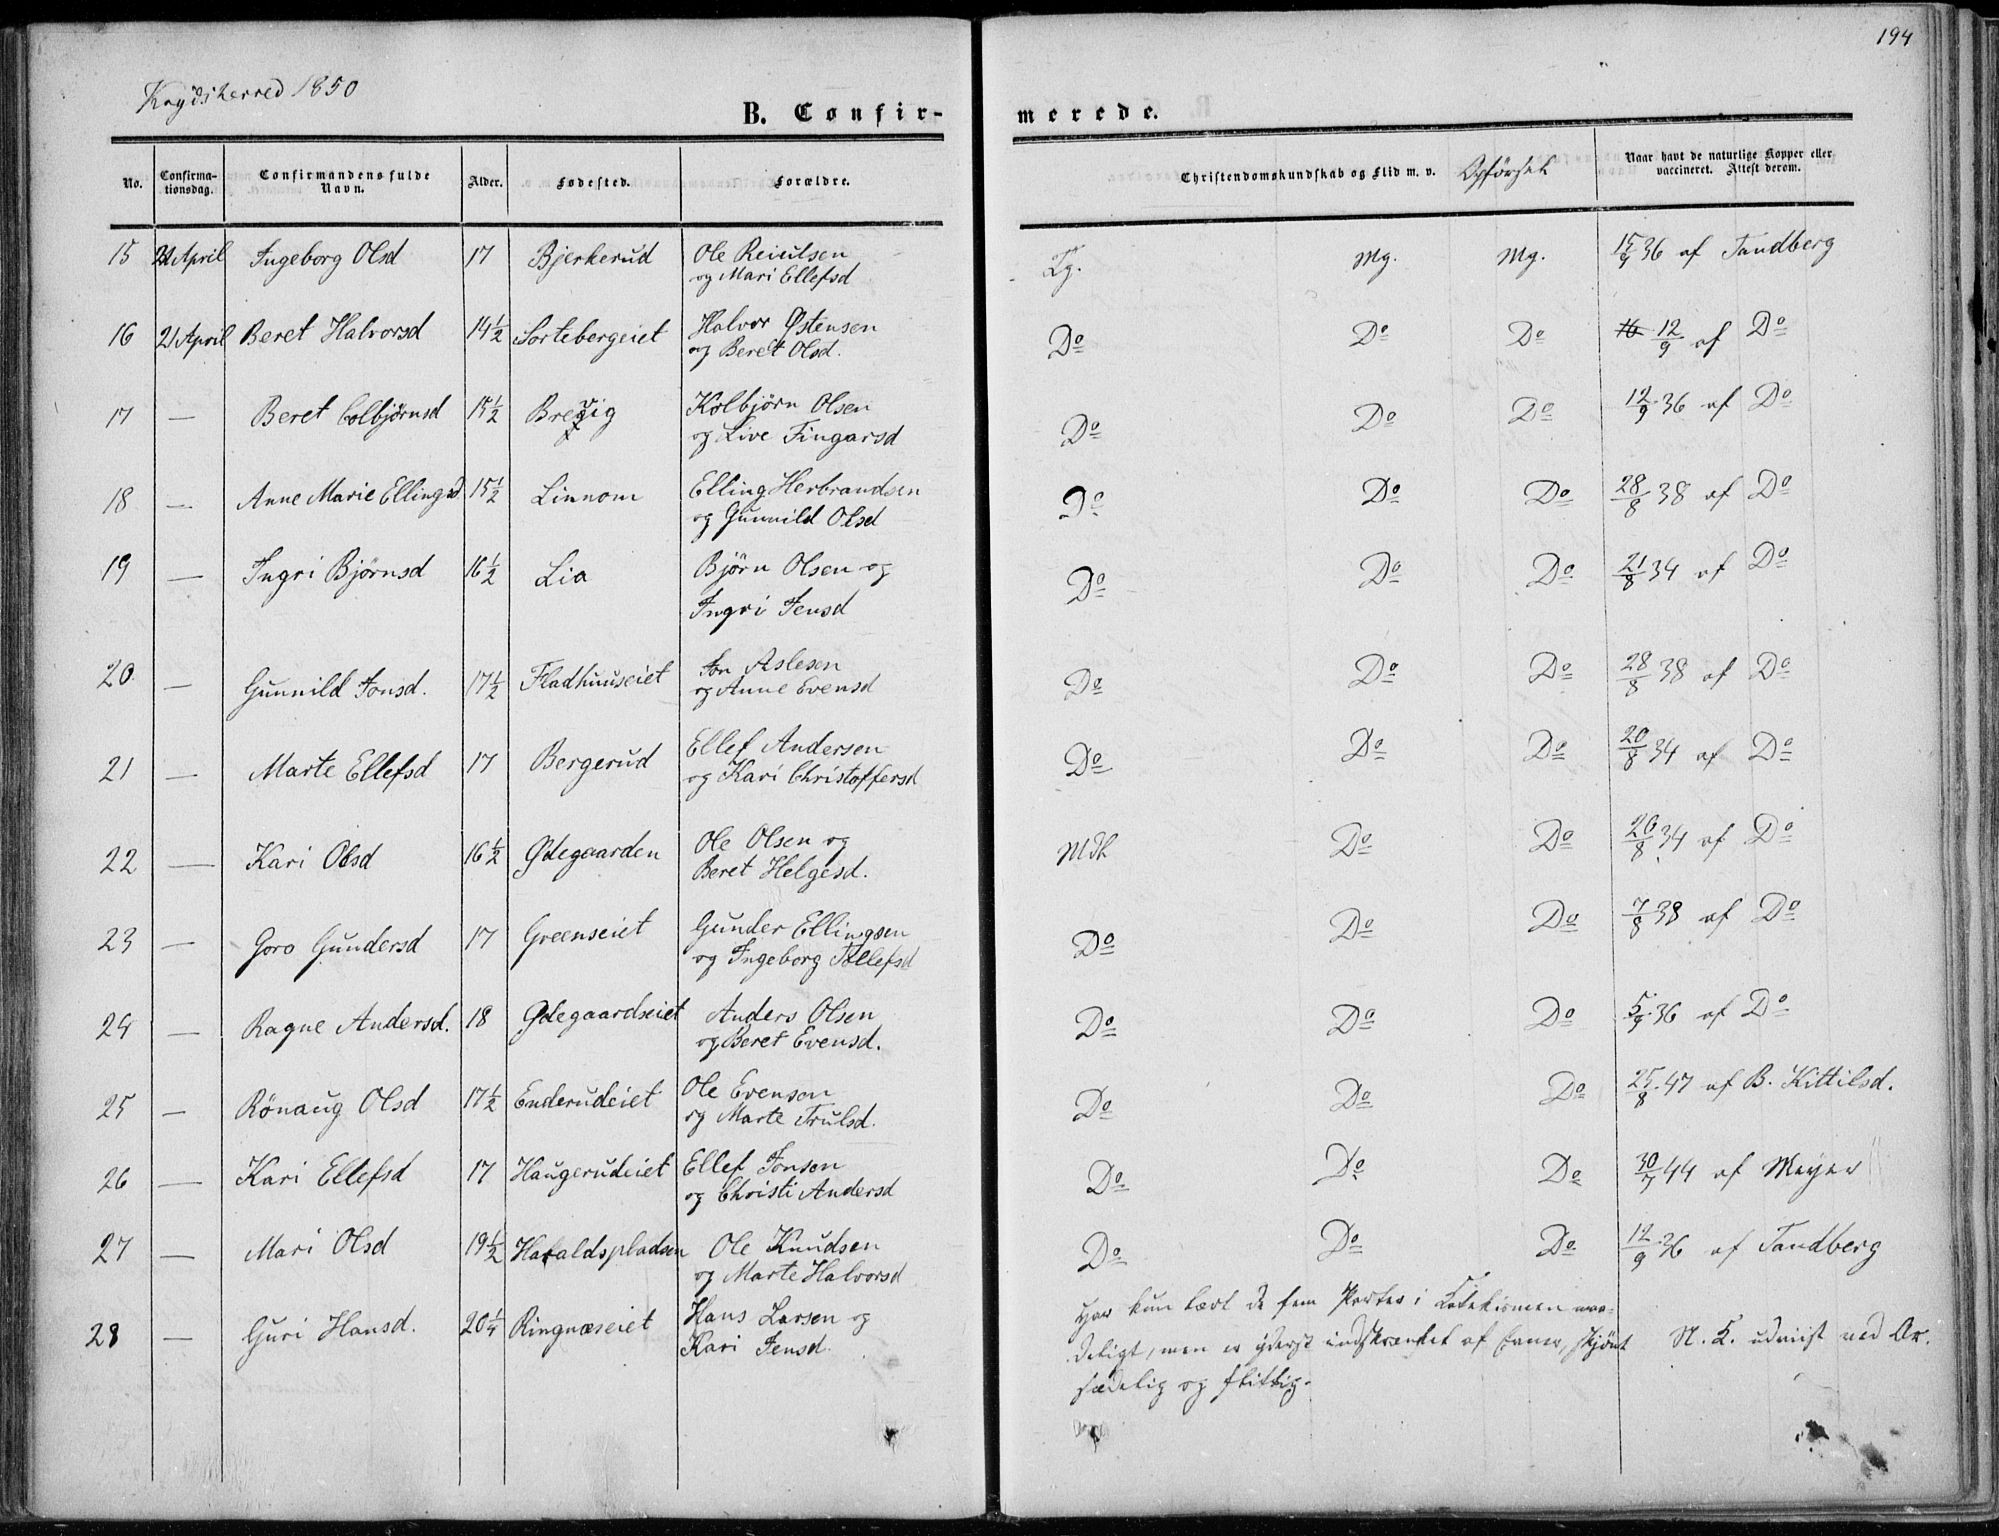 194
Krydsherred 1850
B. Confir-
merede.
No.
Confirma-
tionsdag.
Confirmandens fulde
Navn.
Alder.
Fødested.
Forældre.
Christendomskundskab og Flid m. v.
Opførsel
Naar havt de naturlige Kopper eller
vaccineret. Attest derom.
15 21 April Ingeborg Olsd 17 Bjerkerud Ole Reiulsen
og Mari Ellefsd
Tg. Mg. Mg. 15/9 36 af Tandberg
16 21 April Beret Halvorsd 14 1/2 Sortebergeiet Halvor Østensen
og Beret Olsd.
Do Do Do 12/9 af Do
17 — Beret Colbjørnsd 15 1/2 Brevig Kolbjørn Olsen
og Live Fingarsd
Do Do Do 12/9 36 af Do
18 — Anne Marie Ellingsd 15 1/2 Linnom Elling Herbrandsen
og Gunnild Olsd
Do Do Do 28/8 38 af Do
19 — Ingri Bjørnsd 16 1/2 Lia Bjørn Olsen og
Ingri Jensd
Do Do Do 21/8 34 af Do
20 — Gunnild Jonsd. 17 1/2 Fladhuuseiet Jon Aslesen
og Anne Evensd
Do Do Do 28/8 38 af Do
21 — Marte Ellefsd 17 Bergerud Ellef Andersen
og Kari Christoffersd
Do Do Do 20/8 34 af Do
22 — Kari Olsd 16 1/2 Ødegaarden Ole Olsen og
Beret Helgesd.
Mdl Do Do 20/8 34 af Do
23 — Goro Gundersd 17 Greenseiet Gunder Ellingsen
og Ingeborg Tollefsd
Do Do Do 7/8 38 af Do
24 — Ragne Andersd. 18 Ødegaardseiet Anders Olsen
og Beret Evensd.
Do Do Do 5/9 36 af Do
25 — Rønaug Olsd 17 1/2 Enderudeiet Ole Evensen
og Marte Trulsd.
Do Do Do 25/8 47 af B. Kittilsd.
26 — Kari Ellefsd 17 Haugerudeiet Ellef Jonsen
og Christi Andersd
Do Do Do 30/7 44 af Meyer
27 — Mari Olsd 19 1/2 Haraldspladsen Ole Knudsen
og Marte Halvorsd
Do Do Do 12/9 36 af Tandberg
28 — Guri Hansd. 20 1/4 Ringnæseiet Hans Larsen og
Kari Jensd.
Har kun lært de fem Parter i Katekismen maa-
deligt, men er yderst indskrænket af Evner, skjønt N. K. udviist ved Ar.
sædelig og flittig.